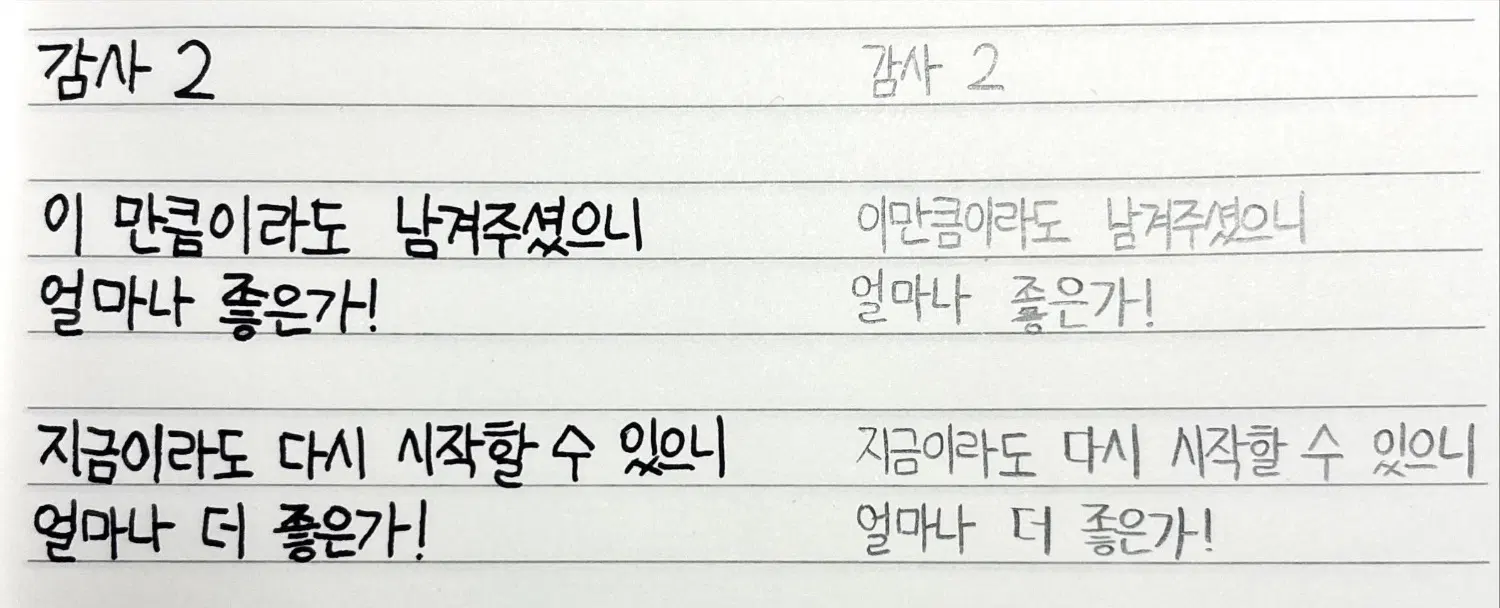 감사 2
이 만큼이라도 남겨주셨으니
얼마나 좋은가!
지금이라도 다시 시작할 수 있으니
얼마나 더 좋은가!
감사 2
이만큼이라도 남겨주셨으니
얼마나 좋은가!
지금이라도 다시 시작할 수 있으니
얼마나 더 좋은가!